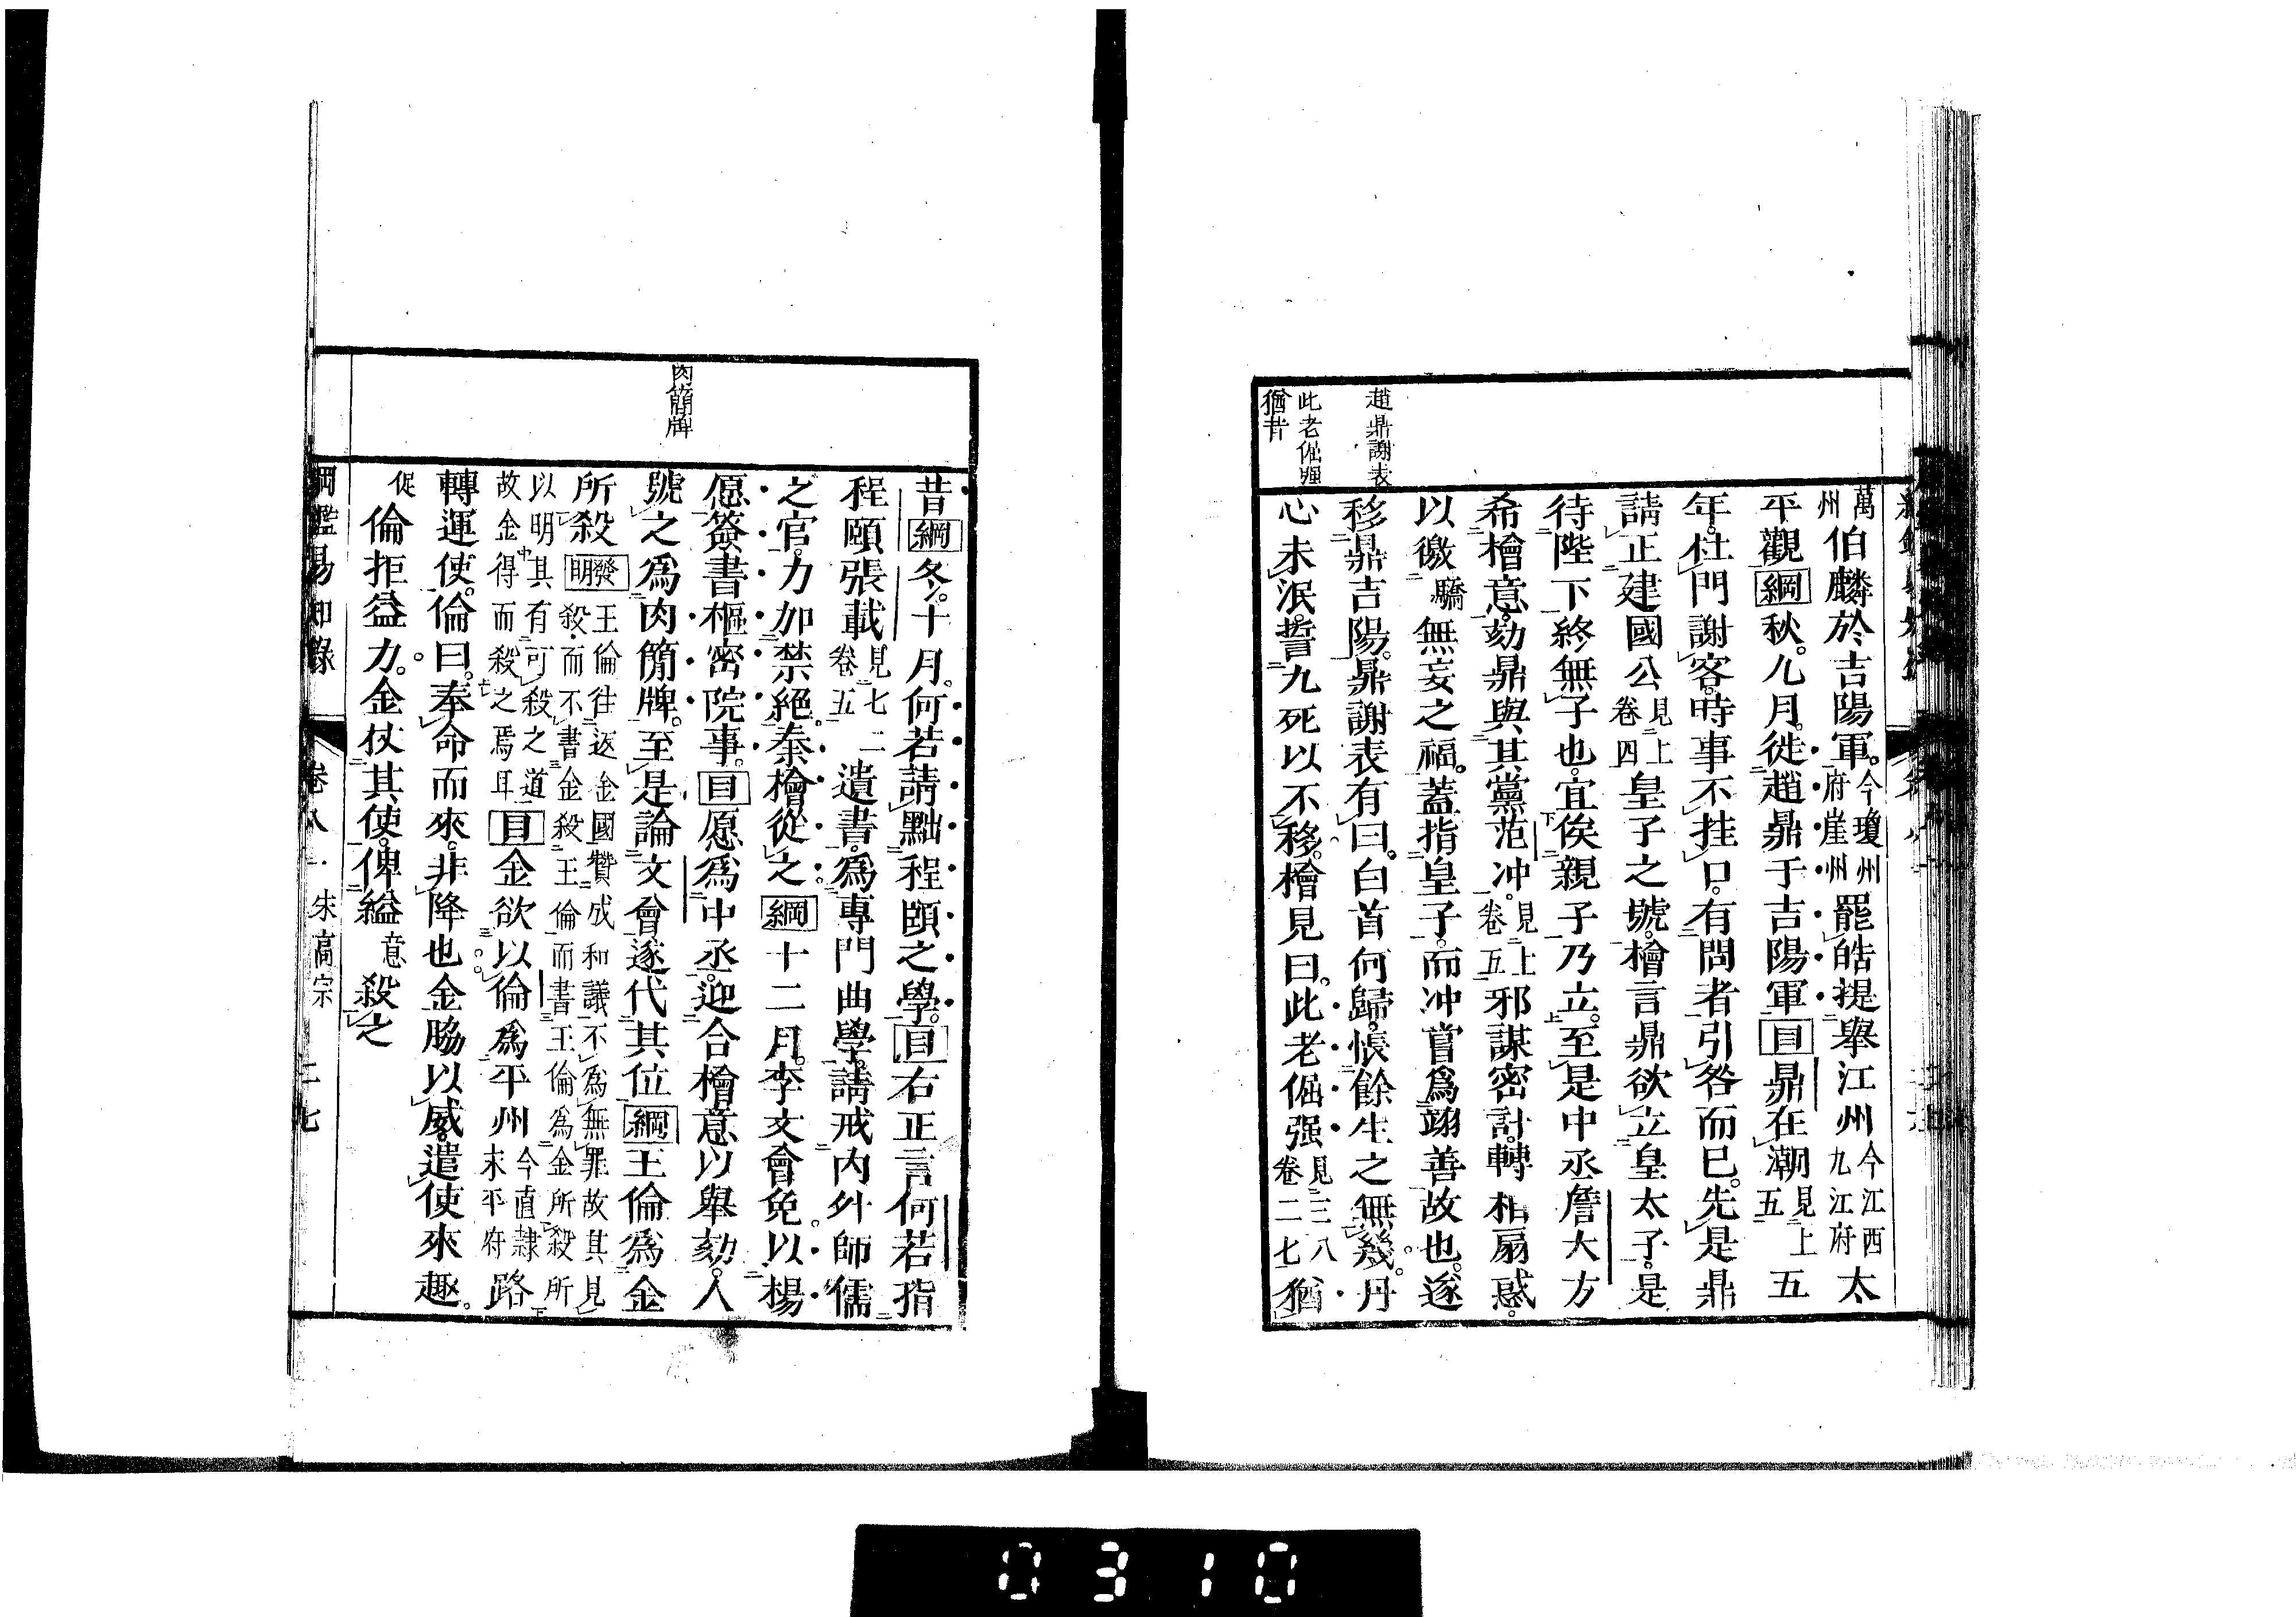 趙鼎謝表
此老倔彊
猶昔
萬州伯麟於吉陽軍。今瓊州府崖州罷皓提舉江州今江西九江府太
平觀綱秋。九月。徙趙鼎于吉陽軍目鼎在潮見上五五
年。杜門謝客。時事不挂口。有問者引咎而已。先是鼎
請正建國公見上卷四皇子之號。檜言鼎欲立皇太子。是
待陛下終無子也。宜俟親子乃立。至是中丞詹大方
希檜意。劾鼎與其黨范冲。見上卷五邪謀密計。轉相扇惑。
以徼驕無妄之福。蓋指皇子。而冲嘗爲翊善故也。遂
移鼎吉陽。鼎謝表有曰。白首何歸。悵餘生之無幾。丹
心未泯。誓九死以不移。檜見曰。此老倔强見三八卷二七猶
肉簡牌
昔綱冬。十月。何若請黜程頤之學。目右正言何若指
程頤張載見七二卷五遺書。爲專門曲學。請戒內外師儒
之官。力加禁絕。秦檜從之。綱十二月。李文會免。以楊
愿簽書樞密院事。目愿爲中丞。迎合檜意以舉劾。人
號之爲肉簡牌。至是論文會遂代其位綱王倫爲金
所殺發明王倫往返金國贊成和議不爲無罪故其見殺而不書金殺王倫而書王倫爲金所殺所
以明其有可殺之道故金得而殺之焉耳目金欲以倫爲平州今直隸永平府路
轉運使。倫曰。奉命而來。非降也金脇以威。遣使來趣。
促倫拒益力。金杖其使。俾縊意殺之
綱鑑易知錄 卷八一 宋高宗 二七
0310